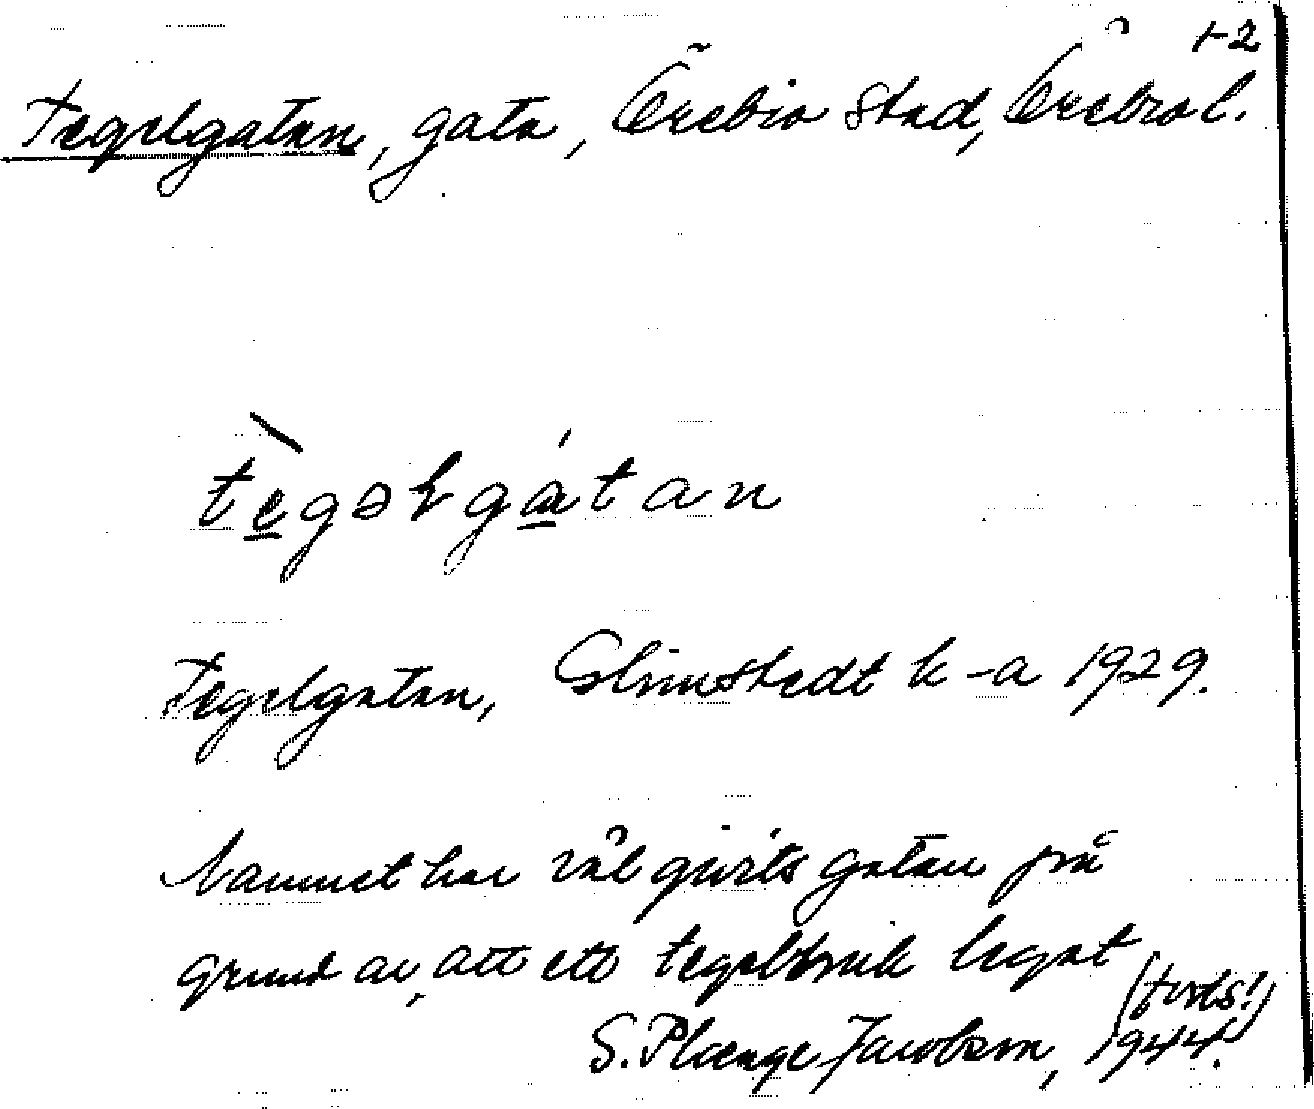 1-2
Tegelgatan, gata, Örebro stad, Örebro l.
tègəlgátan
Tegelgatan, Glimstedt k-a 1929.
Namnet har väl givits gatan på
grund av, att ett tegelbruk legat
(forts!)
S. Plænge Jacobson, 1944.